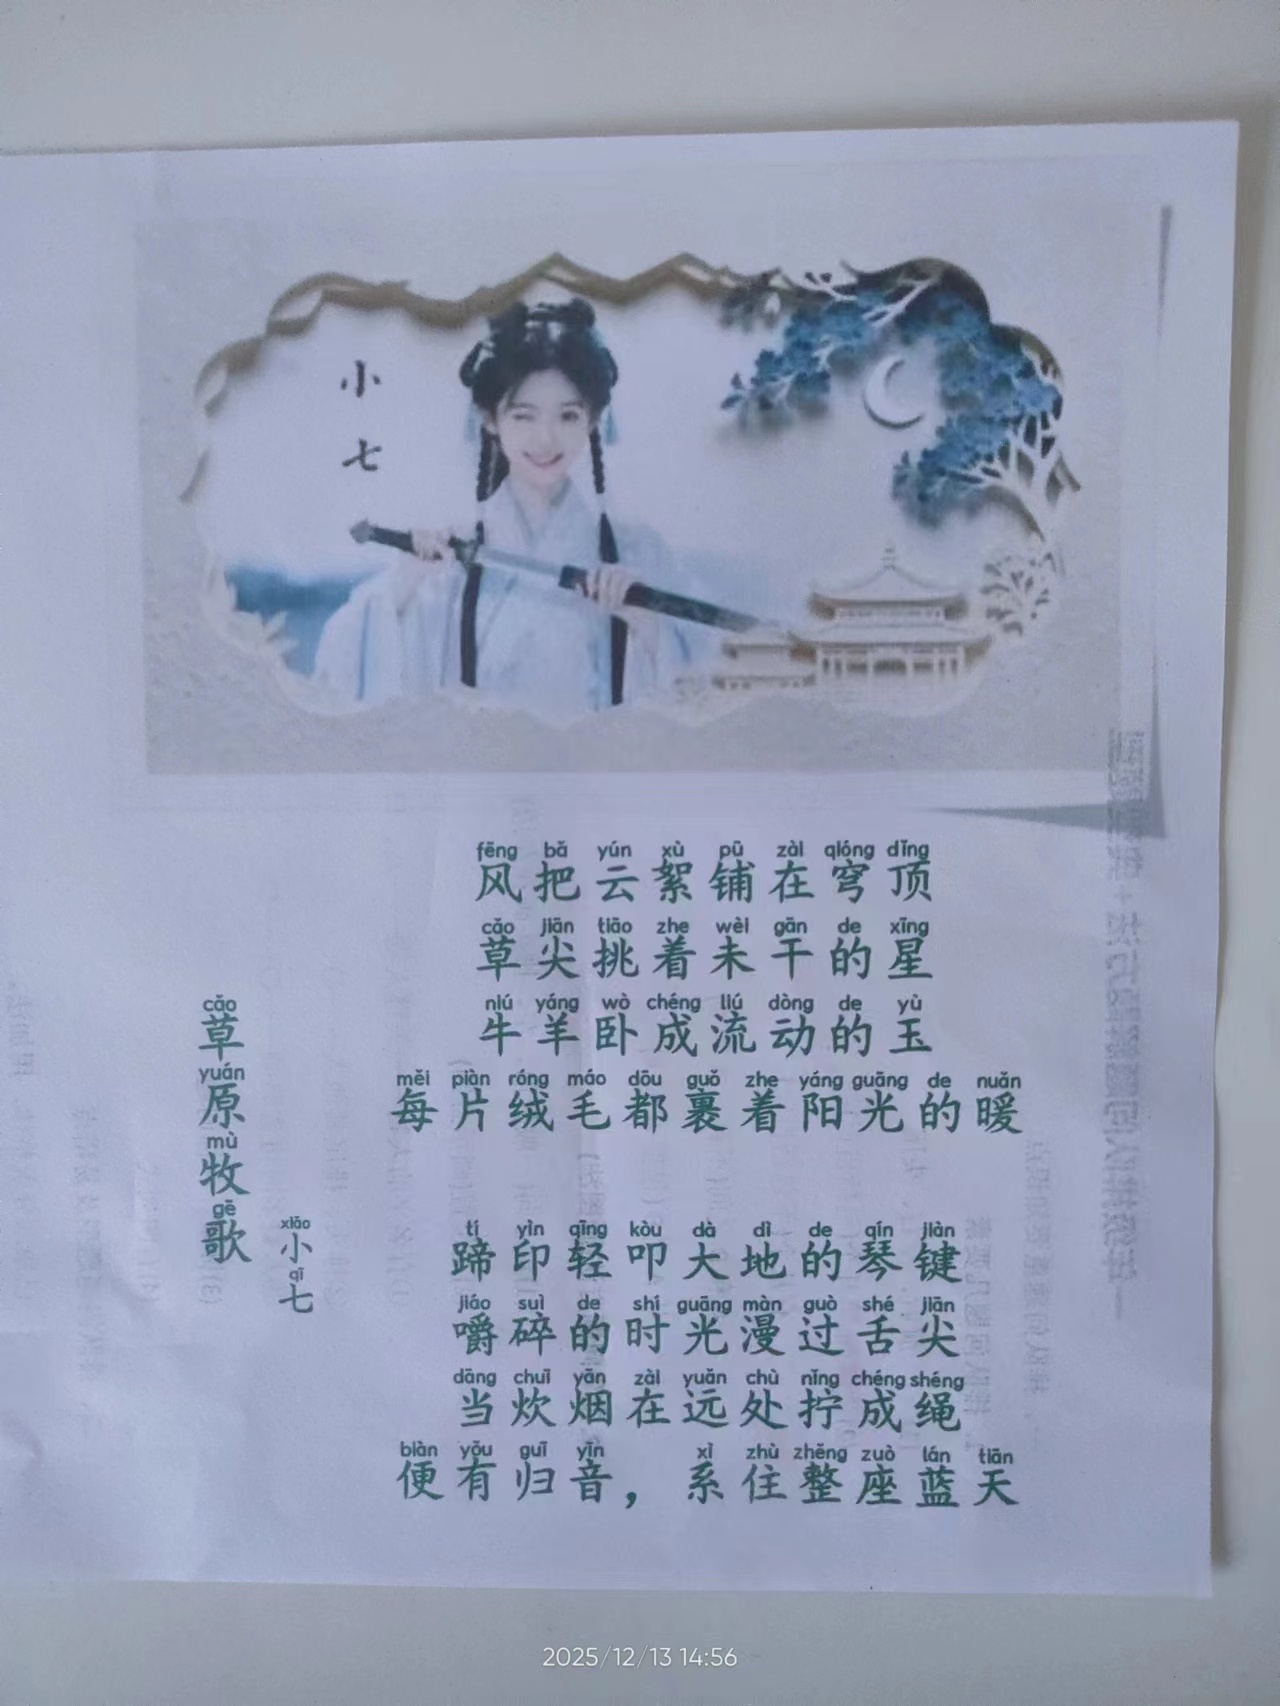 小七
fēng bǎ yún xù pū zài qióng dǐng
风把云絮铺在穹顶
cǎo jiān tiāo zhe wèi gān de xīng
草尖挑着未干的星
niú yáng wò chéng liú dòng de yù
牛羊卧成流动的玉
měi piàn róng máo dōu guǒ zhe yáng guāng de nuǎn
每片绒毛都裹着阳光的暖
cǎo yuán mù gē
草原牧歌
xiǎo qī
小七
tí yìn qīng kòu dà dì de qín jiàn
蹄印轻叩大地的琴键
jiáo suì de shí guāng màn guò shé jiān
嚼碎的时光漫过舌尖
dāng chuī yān zài yuǎn chù nǐng chéng shéng
当炊烟在远处拧成绳
biàn yǒu guī yīn xì zhù zhěng zuò lán tiān
便有归音，系住整座蓝天
2025/12/13 14:56